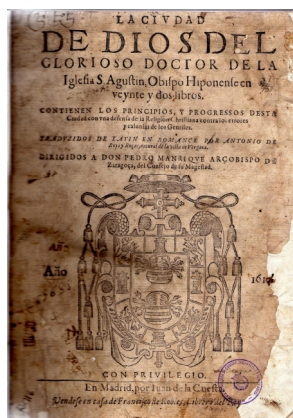 LA CIVDAD
DE DIOS DEL
GLORIOSO DOCTOR DE LA
Iglesia S. Agustin, Obispo Hiponense en
veynte y dos libros.
CONTIENEN LOS PRINCIPIOS, Y PROGRESSOS DESTA
Ciudad con vna defensa de la Religion Christiana contra los errores
y calunias de los Gentiles.
TRADVZIDOS DE LATIN EN ROMANCE POR ANTONIO DE
Roys y natural de la villa de Vergara.
DIRIGIDOS A DON PEDRO MANRIQVE ARÇOBISPO DE
Zaragoça, del Consejo de su Magestad.
Año
CON PRIVILEGIO.
En Madrid, por Iuan de la Cuesta.
Vendese en casa de Francisco de Robles, Librero del